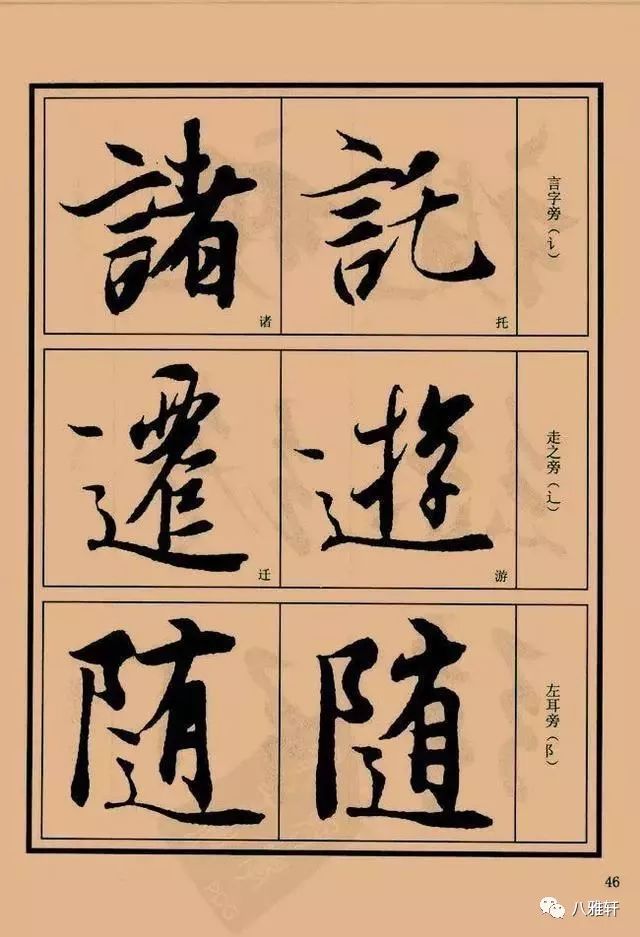 言字旁（讠）
託
托
諸
诸
走之旁（辶）
遊
游
遷
迁
左耳旁（阝）
随
随
46
八雅轩